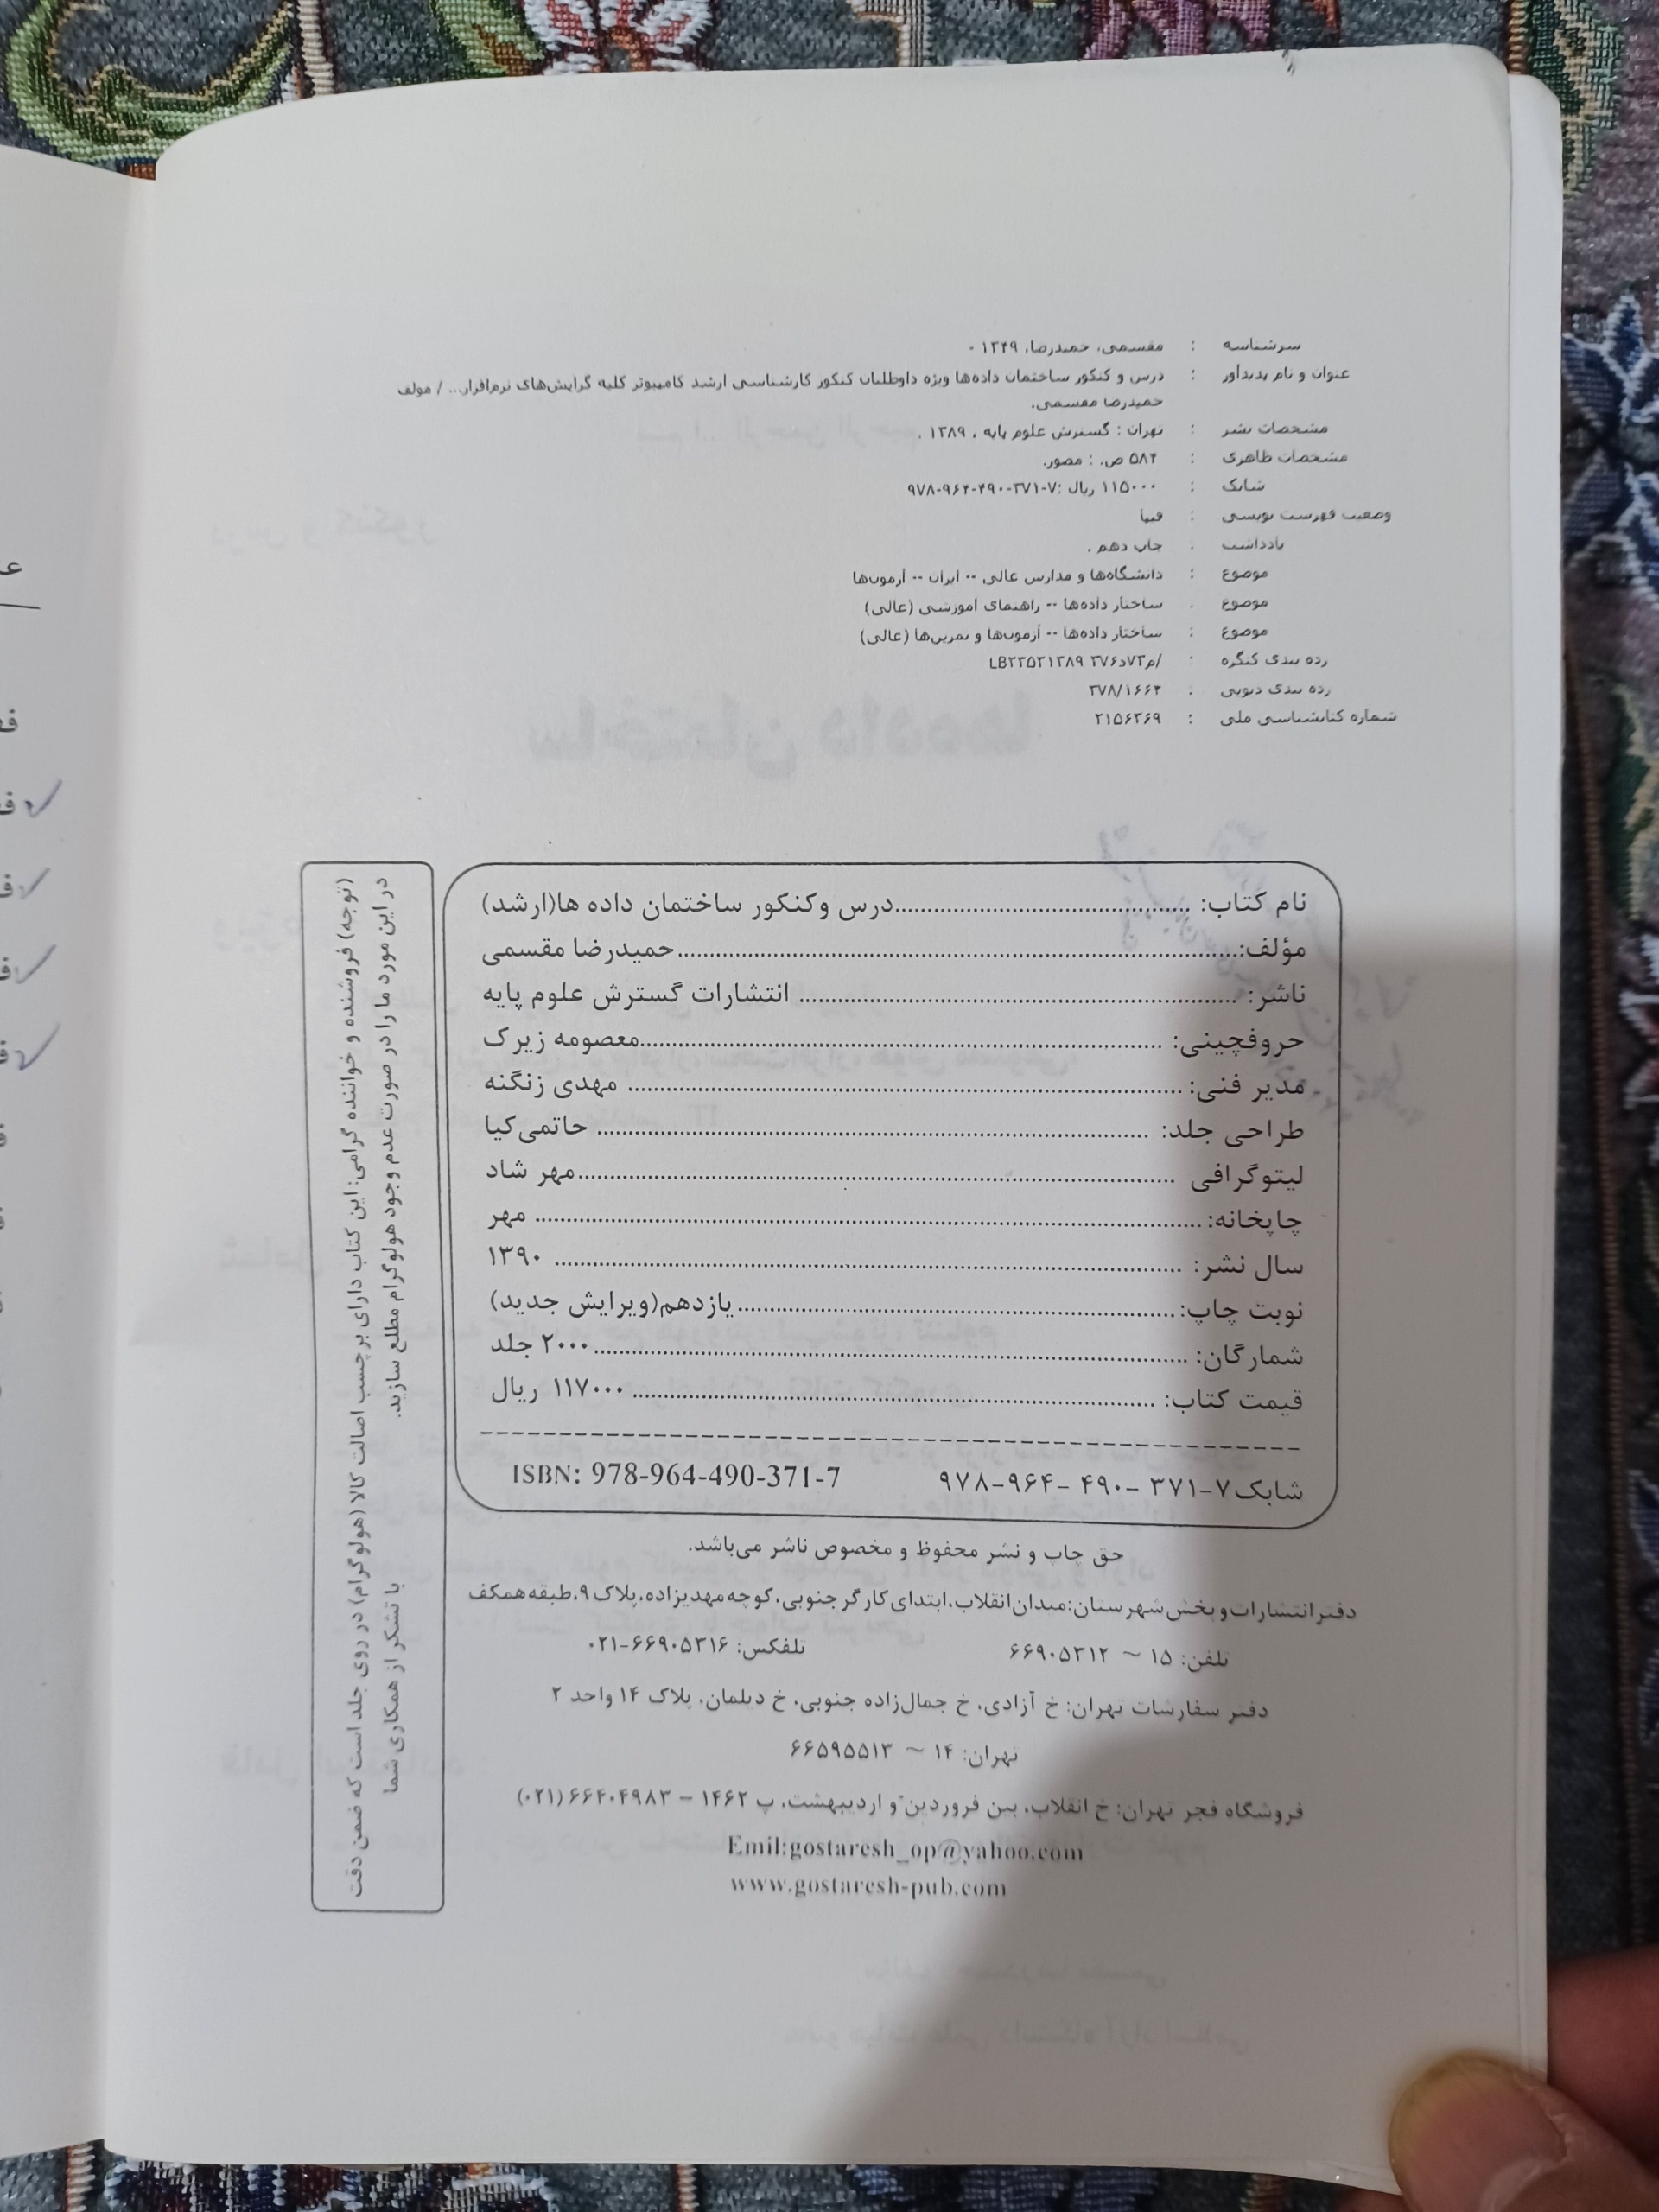 سرشناسه : مقسمی، حمیدرضا، ۱۳۴۹ -
عنوان و نام پدیدآور : درس و کنکور ساختمان داده‌ها ویژه داوطلبان کنکور کارشناسی ارشد کامپیوتر کلیه گرایش‌های نرم‌افزار... / مولف
حمیدرضا مقسمی.
مشخصات نشر : تهران : گسترش علوم پایه ، ۱۳۸۹ .
مشخصات ظاهری : ۵۸۴ ص. : مصور.
شابک : ۱۱۵۰۰۰ ریال :۷-۳۷۱-۴۹۰-۹۶۴-۹۷۸
وضعیت فهرست نویسی : فیپا
یادداشت : چاپ دهم .
موضوع : دانشگاه‌ها و مدارس عالی -- ایران -- آزمون‌ها
موضوع : ساختار داده‌ها -- راهنمای آموزشی (عالی)
موضوع : ساختار داده‌ها -- آزمون‌ها و تمرین‌ها (عالی)
رده بندی کنگره : LB۲۳۵۳۱۳۸۹
رده بندی دیویی : ۳۷۸/۱۶۶۴
شماره کتابشناسی ملی : ۲۱۵۶۳۶۹
نام کتاب: ........درس وکنکور ساختمان داده ها(ارشد)
مؤلف:........حمیدرضا مقسمی
ناشر: ........ انتشارات گسترش علوم پایه
حروفچینی: ........معصومه زیرک
مدیر فنی: ........ مهدی زنگنه
طراحی جلد: ........ حاتمی‌کیا
لیتوگرافی ........مهر شاد
چاپخانه: ........ مهر
سال نشر: ........ ۱۳۹۰
نوبت چاپ: ........یازدهم(ویرایش جدید)
شمارگان: ........۲۰۰۰ جلد
قیمت کتاب: ........ ۱۱۷۰۰۰ ریال
شابک۷-۳۷۱ -۴۹۰ -۹۶۴-۹۷۸ ISBN: 978-964-490-371-7
حق چاپ و نشر محفوظ و مخصوص ناشر می‌باشد.
دفتر انتشارات و پخش شهرستان: میدان انقلاب، ابتدای کارگر جنوبی، کوچه مهدیزاده، پلاک ۹، طبقه همکف
تلفن: ۱۵ ~ ۶۶۹۰۵۳۱۲ تلفکس: ۶۶۹۰۵۳۱۶-۰۲۱
دفتر سفارشات تهران: خ آزادی، خ جمال‌زاده جنوبی، خ دیلمان، پلاک ۱۴ واحد ۲
تهران: ۱۴ ~ ۶۶۵۹۵۵۱۳
فروشگاه فجر تهران: خ انقلاب، بین فروردین و اردیبهشت، پ ۱۴۶۲ - ۶۶۴۰۴۹۸۳ (۰۲۱)
Emil:gostaresh_op@yahoo.com
www.gostaresh-pub.com
(توجه) فروشنده و خواننده گرامی: این کتاب دارای برچسب اصالت کالا (هولوگرام) در روی جلد است که ضمن دقت
در این مورد ما را در صورت عدم وجود هولوگرام مطلع سازید.
با تشکر از همکاری شما